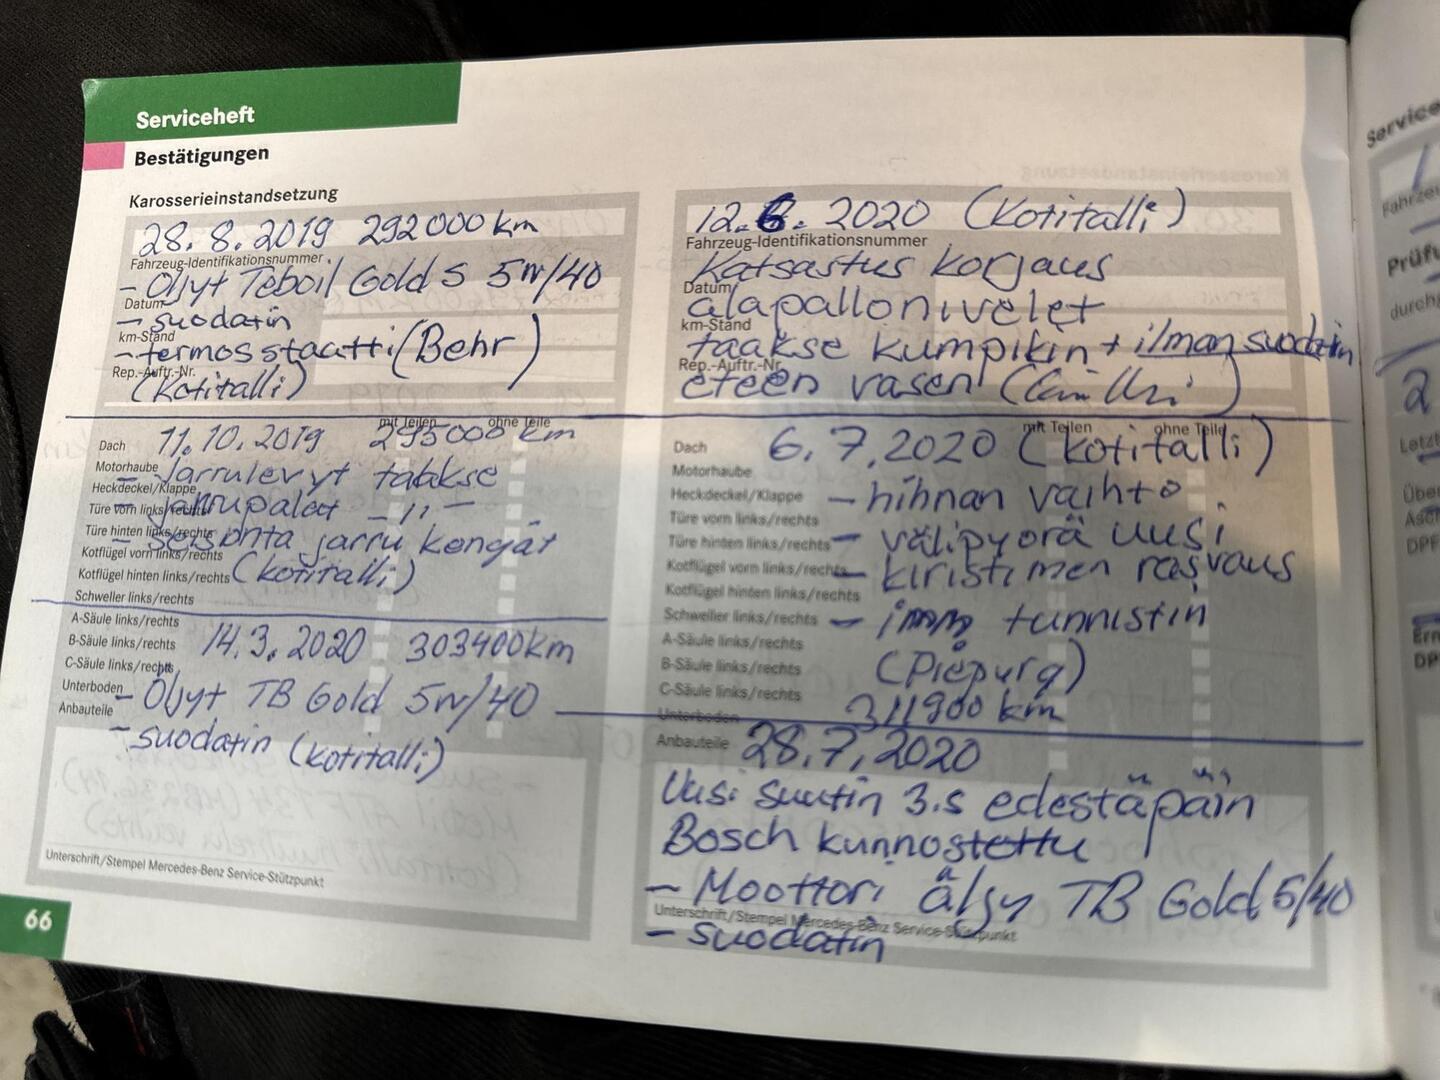 Serviceheft
Bestätigungen
Karosserieinstandsetzung
28.8.2019 292000 km
Fahrzeug-Identifikationsnummer
- Öljyt Teboil Gold S 5w/40
Datum
- suodatin
km-Stand
- termosstaatti (Behr)
Rep.-Auftr.-Nr.
(Kotitalli)
mit Teilen ohne Teile
Dach 11.10.2019 295000 km
Motorhaube - Jarrulevyt taakse
Heckdeckel/Klappe
Türe vorn links/rechts - jarrupalat - " -
Türe hinten links/rechts - seisonta jarru kengät
Kotflügel vorn links/rechts
Kotflügel hinten links/rechts (kotitalli)
Schweller links/rechts
A-Säule links/rechts
B-Säule links/rechts 14.3.2020 303400km
C-Säule links/rechts
Unterboden - Öljyt TB Gold 5w/40
Anbauteile
- suodatin (kotitalli)
Unterschrift/Stempel Mercedes-Benz Service-Stützpunkt
66
12.6.2020 (Kotitalli)
Fahrzeug-Identifikationsnummer
Katsastus korjaus
Datum
alapallonivelet
km-Stand
taakse kumpikin + ilmansuodatin
Rep.-Auftr.-Nr.
eteen vasen
mit Teilen ohne Teile
Dach 6.7.2020 (kotitalli)
Motorhaube
Heckdeckel/Klappe - hihnan vaihto
Türe vorn links/rechts
Türe hinten links/rechts - välipyörä uusi
Kotflügel vorn links/rechts - kiristimen rasvaus
Kotflügel hinten links/rechts
Schweller links/rechts - tunnistin
A-Säule links/rechts
B-Säule links/rechts (Pierburg)
C-Säule links/rechts
Unterboden 311900 km
Anbauteile 28.7.2020
Uusi suutin 3.s edestäpäin
Bosch kunnostettu
- Moottori öljy TB Gold 5/40
Unterschrift/Stempel Mercedes-Benz Service-Stützpunkt
- suodatin
Service